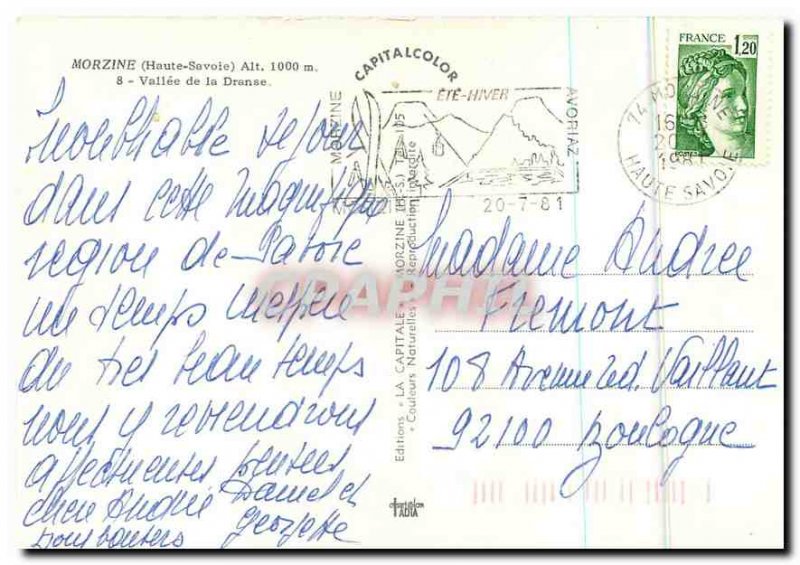 MORZINE (Haute-Savoie) Alt. 1000 m.
8 - Vallée de la Dranse
Inoubliable séjour
dans cette magnifique
région de Savoie
un temps
du très beau temps
nous y reviendrons
affectueuses pensées
chère Andrée Daniel et
Georgette
CAPITALCOLOR
MORZINE
ÉTÉ-HIVER
AVORIAZ
20-7-81
74 MORZINE
16
20
1981
HAUTE SAVOIE
FRANCE 1,20
POSTES
Editions « LA CAPITALE » MORZINE (H.-S.) Tél. 105
« Couleurs Naturelles » Reproduction interdite
CPAPHIL
Madame Andrée
Fremont
108 Avenue Ed. Vaillant
92100 Boulogne